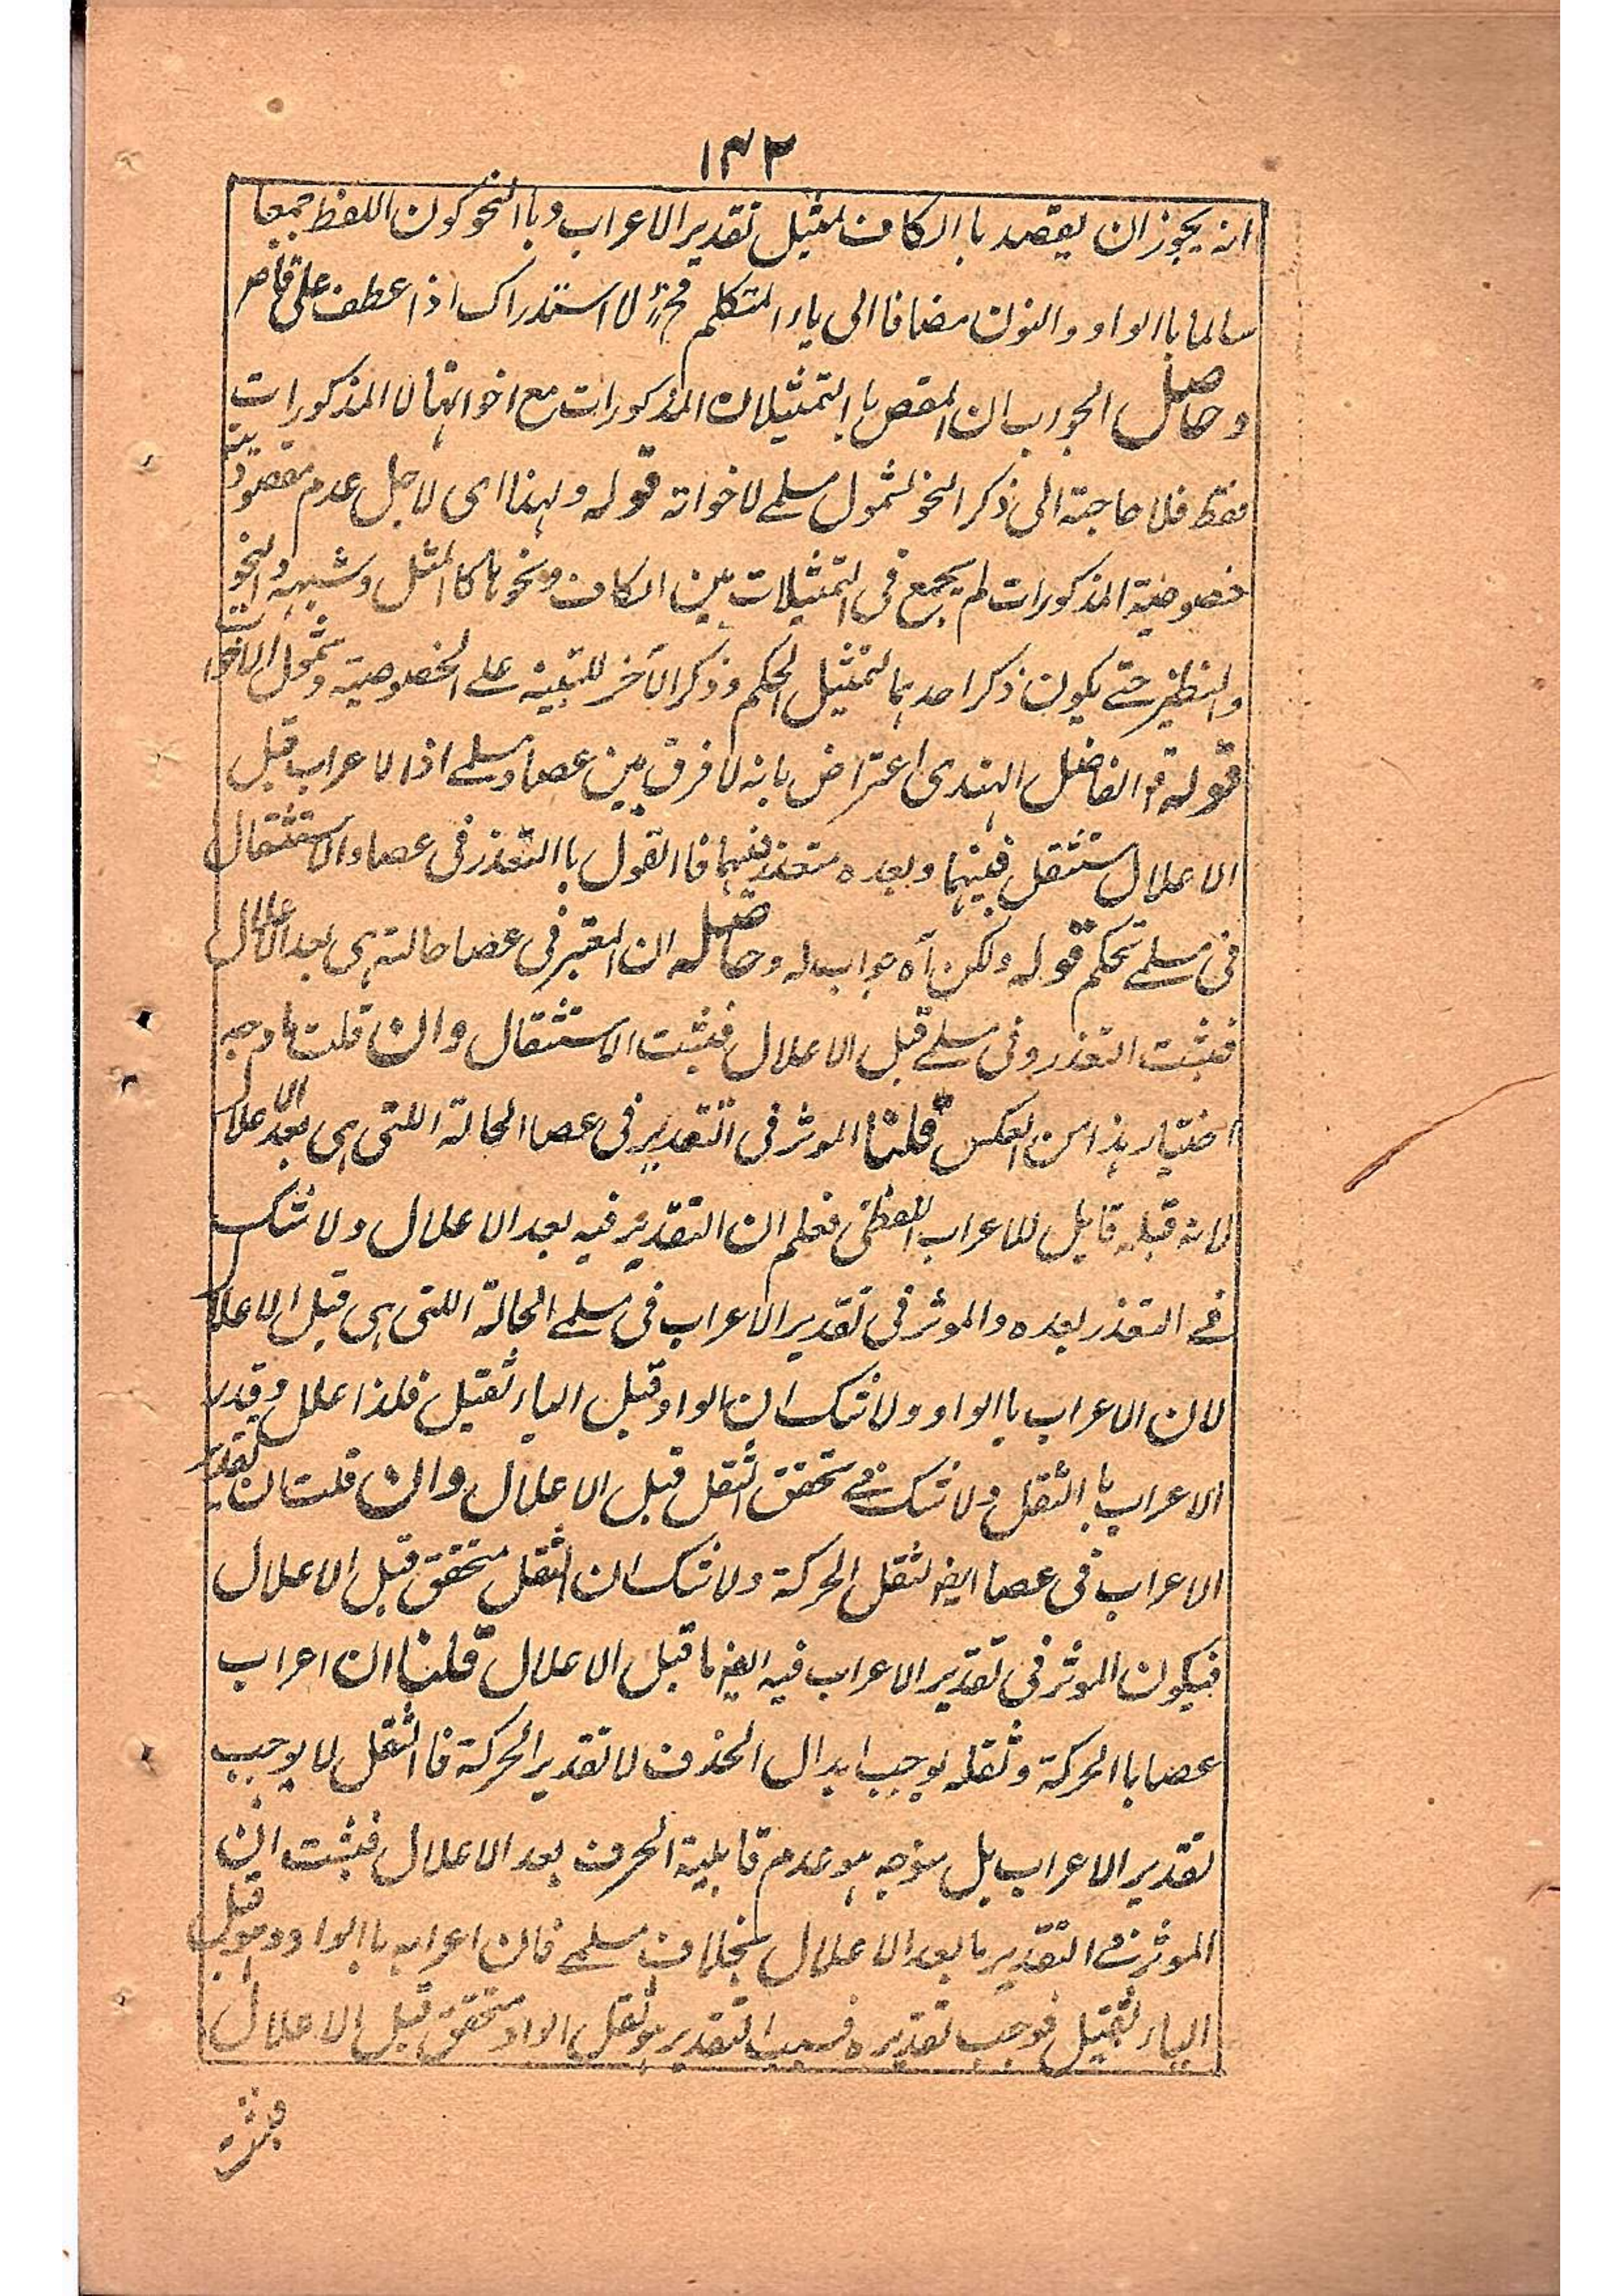 ١٣٢
انه يجوز ان يقصد باالكاف تمثيل تقدير الاعراب وباالنحو كون اللفظ جمعا
سالما باالواو والنون مضافا الى ياء المتكلم فح لا استدراك اذا عطف على قاض
وحاصل الجواب ان المقص باالتمثيلان المذكورات مع اخواتها لا المذكورات
فقط فلا حاجة الى ذكر النحو لشمول مسلمے لاخواته قوله ولهذا اى لاجل عدم مقصودية
خصوصية المذكورات لم يجمع فى التمثيلات بين الكاف ونحوها كاالمثل وشبهه والنحو
والنظير حتے يكون ذكر احدهما لتمثيل الحكم وذكر الآخر للتبيه علے الخصوصية وشمول الاخوات
قوله الفاضل الهندى اعتراض بانه لا فرق بين عصا ومسلمے اذا لاعراب قبل
الاعلال مستثقل فيهما وبعده متعذر فيهما فاالقول باالتعذر فى عصا والاستثقال
فى مسلمے تحكم قوله ولكن آه جواب له وحاصله ان المعتبر فى عصا حالته هى بعد الاعلال
فيثبت التعذر وفى مسلمے قبل الاعلال فيثبت الاستثقال وان قلت ما وجه
اختيار هذا من العكس قلنا الموثر فى التقدير فى عصا الحالة اللتى هى بعد الاعلال
لانه قبله قابل للاعراب اللفظى فعلم ان التقدير فيه بعد الاعلال ولا شك
فے التعذر بعده والموثر فى تقدير الاعراب فى مسلمے الحالة اللتى هى قبل الاعلال
لان الاعراب باالواو ولا شك ان الواو قبل الياء ثقيل فلذا علل وقدر
الاعراب باالثقل ولا شك فے تحقق الثقل قبل الاعلال وان قلت ان تقدير
الاعراب فى عصا ايض لثقل الحركة ولا شك ان الثقل متحقق قبل الاعلال
فيكون الموثر فى تقدير الاعراب فيه ايض ما قبل الاعلال قلنا ان اعراب
عصا باالحركة وثقله يوجب ابدال الحذف لا تقدير الحركة فاالثقل لا يوجب
تقدير الاعراب بل موجبه هو عدم قابلية الحرف بعد الاعلال فيثبت ان
الموثر فے التقدير ما بعد الاعلال بخلاف مسلمے فان اعرابه باالواو وهو قبل
الياء ثقيل فوجب تقديره فسبب التقدير هو ثقل الواو متحقق قبل الاعلال